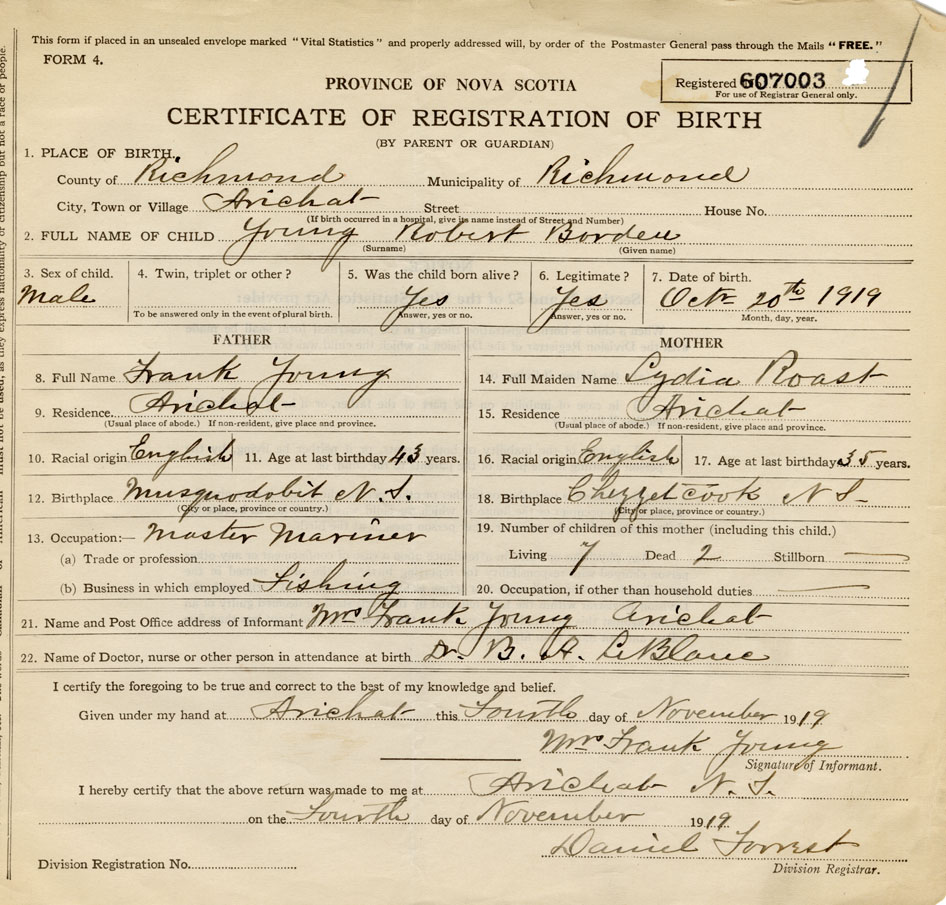 This form if placed in an unsealed envelope marked "Vital Statistics" and properly addressed will, by order of the Postmaster General pass through the Mails "FREE."
FORM 4.
Registered 607003
For use of Registrar General only.
PROVINCE OF NOVA SCOTIA
CERTIFICATE OF REGISTRATION OF BIRTH
(BY PARENT OR GUARDIAN)
1. PLACE OF BIRTH.
County of Richmond Municipality of Richmond
City, Town or Village Arichat Street House No.
(If birth occurred in a hospital, give its name instead of Street and Number)
2. FULL NAME OF CHILD Young Robert Borden
(Surname) (Given name)
3. Sex of child. 4. Twin, triplet or other? 5. Was the child born alive? 6. Legitimate? 7. Date of birth.
Male Yes Yes Oct 20th 1919
To be answered only in the event of plural birth. Answer, yes or no. Answer, yes or no. Month, day, year.
FATHER
8. Full Name Frank Young
9. Residence. Arichat
(Usual place of abode.) If non-resident, give place and province.
10. Racial origin English 11. Age at last birthday 43 years.
12. Birthplace Musquodobit N.S.
(City or place, province or country.)
13. Occupation:— Master Mariner
(a) Trade or profession
(b) Business in which employed Fishing
MOTHER
14. Full Maiden Name Lydia Roast
15. Residence Arichat
(Usual place of abode.) If non-resident, give place and province.
16. Racial origin English 17. Age at last birthday 35 years.
18. Birthplace Chezzetcook N S
(City or place, province or country.)
19. Number of children of this mother (including this child.)
Living 7 Dead 2 Stillborn —
20. Occupation, if other than household duties —
21. Name and Post Office address of Informant Mrs Frank Young Arichat
22. Name of Doctor, nurse or other person in attendance at birth Dr. B. A. LeBlanc
I certify the foregoing to be true and correct to the best of my knowledge and belief.
Given under my hand at Arichat this Fourth day of November 1919
Mrs Frank Young
Signature of Informant.
I hereby certify that the above return was made to me at Arichat N.S.
on the Fourth day of November 1919
Daniel Forrest
Division Registrar.
Division Registration No.